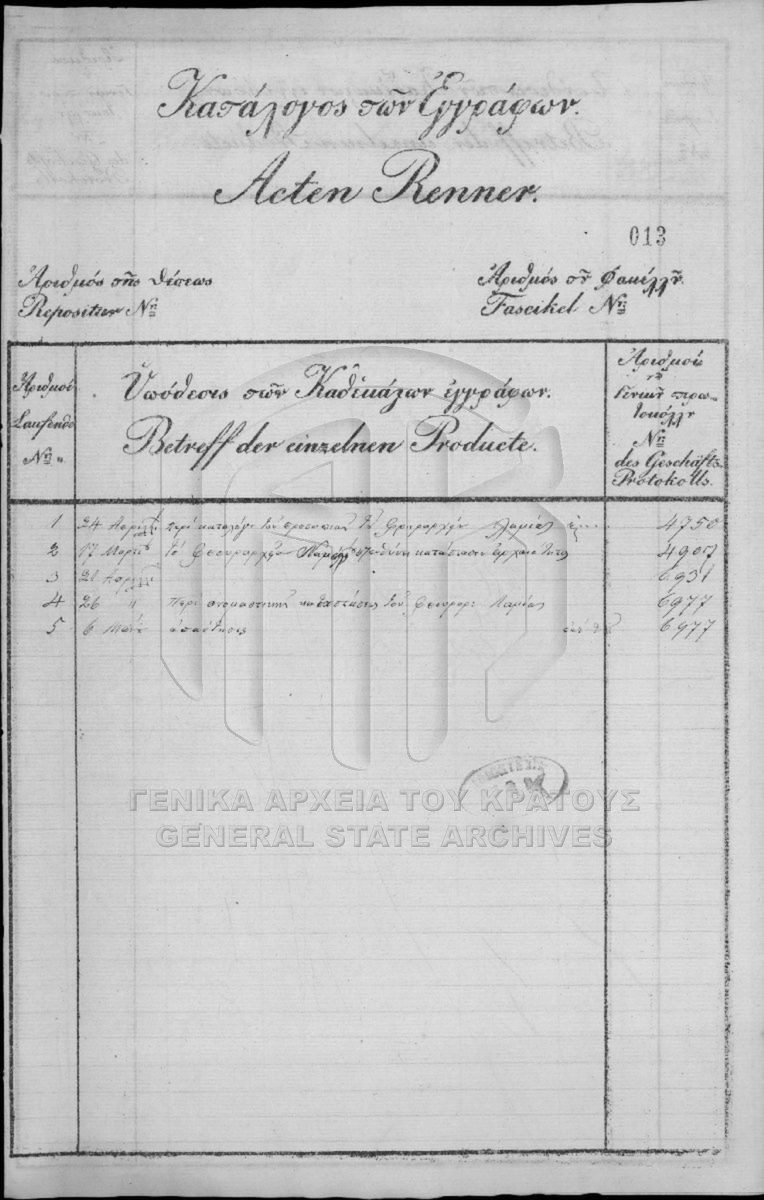 Κατάλογος τῶν Ἐγγράφων.
Acten Renner.
013
Ἀριθμός τῆς θέσεως
Repositur Nṛọ
Ἀριθμός τȣ͂ Φακέλλȣ.
Fascikel Nrọ
Ἀριθμοί
Laufende
Nrọ
Ὑπόθεσις τῶν Καθεκάςων ἐγγράφων.
Betreff der einzelnen Producte.
Ἀριθμοί
τȣ͂
Γενικȣ͂ πρω-
τοκόλλȣ
Nrọ
des Geschäfts-
Protokolls.
1 24 περὶ καταλόγου τοῦ Λαμίας 4750
2 17 Μαρτ 4907
3 21 Ἀπριλ 6931
4 26 " Περὶ ὀνομαστικῆς καταστάσεως τοῦ Λαμίας 6977
5 6 ἀπάντησις 6977
ΓΕΝΙΚΑ ΑΡΧΕΙΑ ΤΟΥ ΚΡΑΤΟΥΣ
GENERAL STATE ARCHIVES